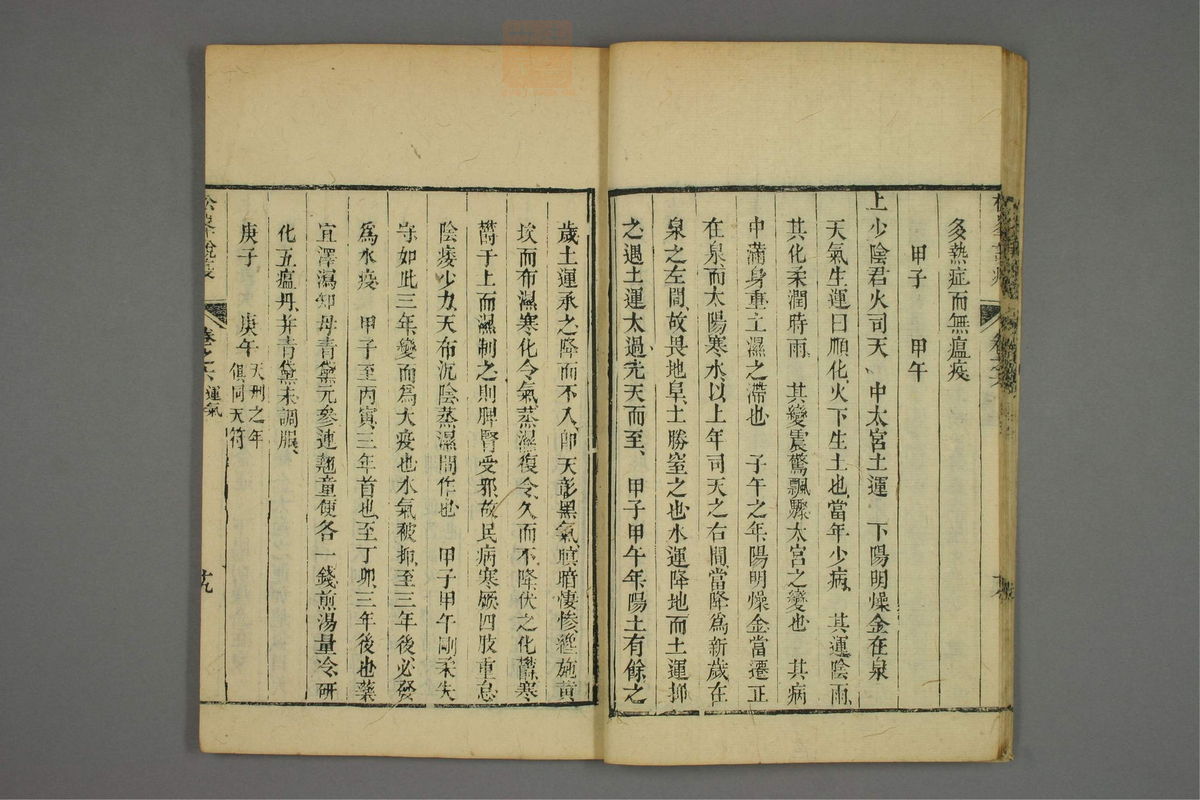 多熱症而無瘟疫
甲子　甲午
上少陰君火司天　中太宮土運　下陽明燥金在泉
天氣生運曰順化火下生土也當年少病　其運陰雨
其化柔潤時雨　其變震驚飄驟太宮之變也　其病
中滿身重土濕之滯也　子午之年陽明燥金當遷正
在泉而太陽寒水以上年司天之右間當降為新歲在
泉之左間故畏地阜土勝窒之也水運降地而土運抑
之遇土運太過先天而至　甲子甲午年陽土有餘之
歲土運承之降而不入卽天彰黑氣瞑暗悽慘纔施黃
埃而布濕寒化令氣蒸濕復令久而不降伏之化鬱寒
鬱于上而濕制之則脾腎受邪故民病寒厥四肢重怠
陰痿少力天布沉陰蒸濕間作也　甲子甲午剛柔失
守如此三年變而為大疫也水氣被抑至三年後必發
為水疫　甲子至丙寅三年首也至丁卯三年後也藥
宜澤瀉知母青黛元參連翹童便各一錢煎湯量冷研
化五瘟丹幷青黛末調服
庚子　庚午　天刑之年俱同天符
松峯說疫　卷之六　運氣　廿九